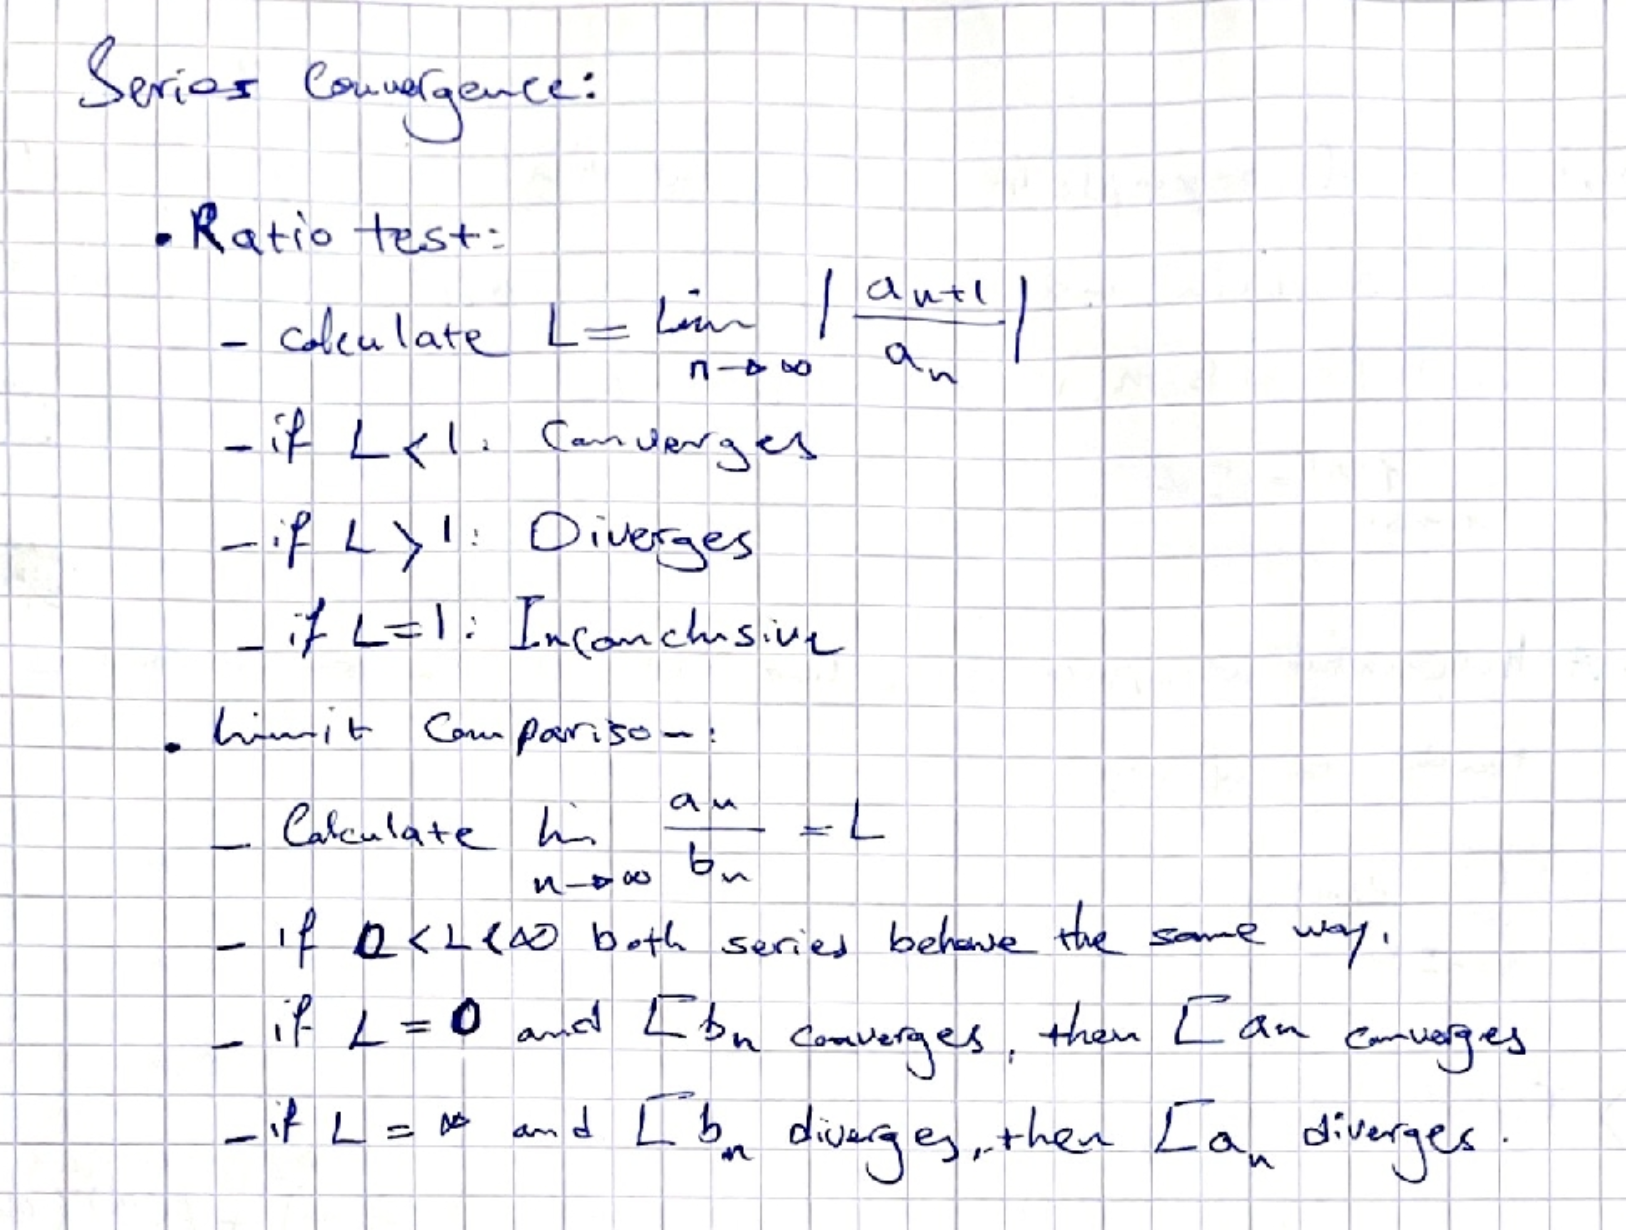 Series Convergence:
• Ratio test:
- calculate L = Lim n→∞ | a_{n+1} / a_n |
- if L < 1: Converges
- if L > 1: Diverges
- if L = 1: Inconclusive
• Limit Comparison:
- Calculate lim n→∞ a_n / b_n = L
- if 0 < L < ∞ both series behave the same way.
- if L = 0 and Σ b_n converges, then Σ a_n converges
- if L = ∞ and Σ b_n diverges, then Σ a_n diverges.